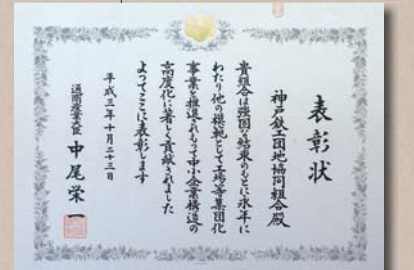 表彰状
神戸鉄工団地協同組合殿
貴組合は強固な結束のもとに永年に
わたり他の模範として工場等集団化
事業を推進されもって中小企業構造の
高度化に著しく貢献されました
よってここに表彰します
平成三年十月二十三日
通商産業大臣 中尾栄一